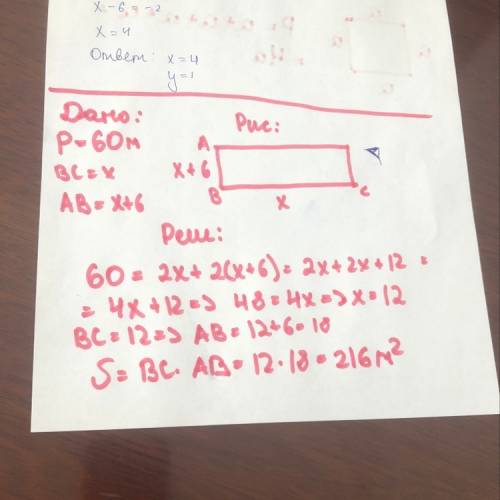 x - 6 = -2
x = 4
Ответ: x = 4
y = 1
Дано:
P = 60м
BC = x
AB = x+6
Рис:
A
x+6
B
x
C
Реш:
60 = 2x + 2(x+6) = 2x + 2x + 12 =
= 4x + 12 => 48 = 4x => x = 12
BC = 12 => AB = 12+6 = 18
S = BC · AB = 12 · 18 = 216 м²